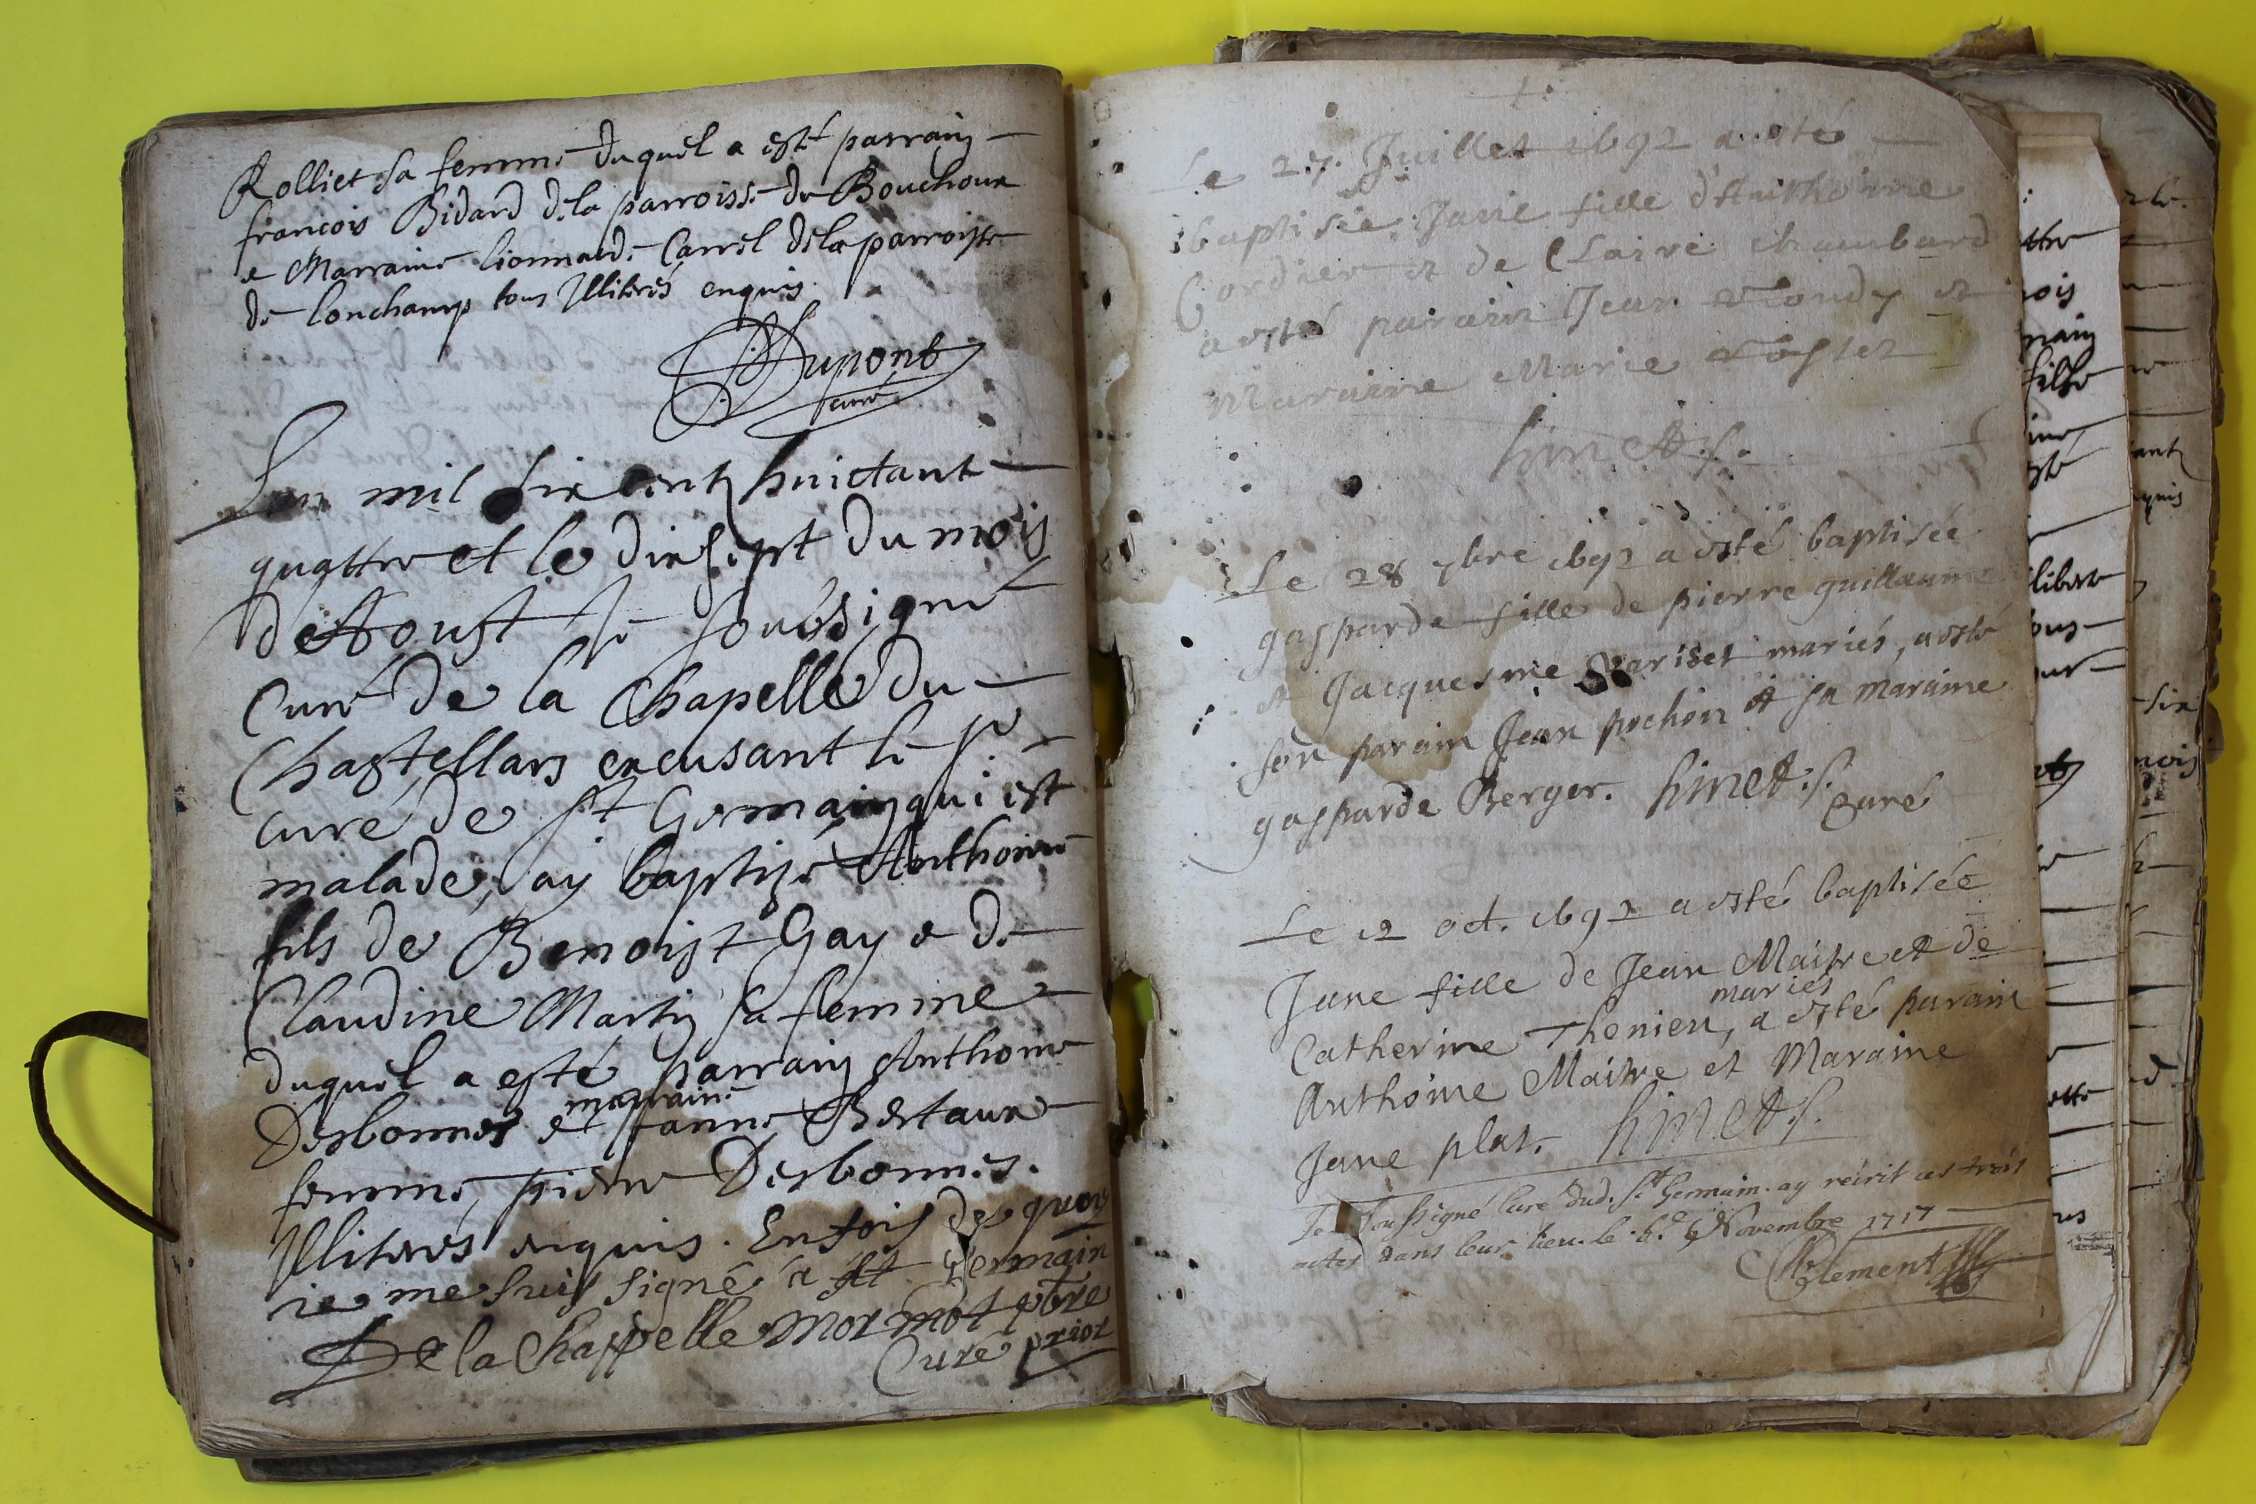 Rolliet sa femme duquel a esté parrain
françois Bidard dela parroisse du Bouchoux
e Marraine lionnarde Carrel dela parroisse
de lonchamp tous Illiterés enquis.
Dupont
curé
Lan mil six cents huictant
quattre et le dixsept du mois
de Aoust Je soubsigné
Curé de la Chapelle du
Chastellars excusant le sr
curé de st Germain qui est
malade, ay baptizé Anthoine
fils de Benoist Gay e de
Claudine Martin sa femme
duquel a esté parrain Anthoine
marraine
Desbonnes et janne Bertaux
femme, pierre Desbonnes.
Illiterés enquis. En fois de quoy
ie me suis signé a st Germain
De la Chappelle mormot pbre
Curé prior
Le 27. Juillet 1692 a esté
baptisée Jane fille d'Anthoinne
Cordier et de Claire Chambard
a esté parain Jean et
Maraine Marie
binet
Le 28 7bre 1692 a esté baptisée
gasparde fille de pierre guillaume
et Jacquesme variset mariés, a esté
son parain Jean pochon et sa maraine
gasparde Berger. binet
Curé
Le 12 oct. 1692 a esté baptisée
Jane fille de Jean Maitre et de
mariés
Catherine Thenieu, a esté parain
Anthoine Maitre et Maraine
Jane plat. binet
Je soussigné Curé dud. st Germain ay reécrit ces trois
actes dans leur lieu. le 6e Novembre 1717
Clement